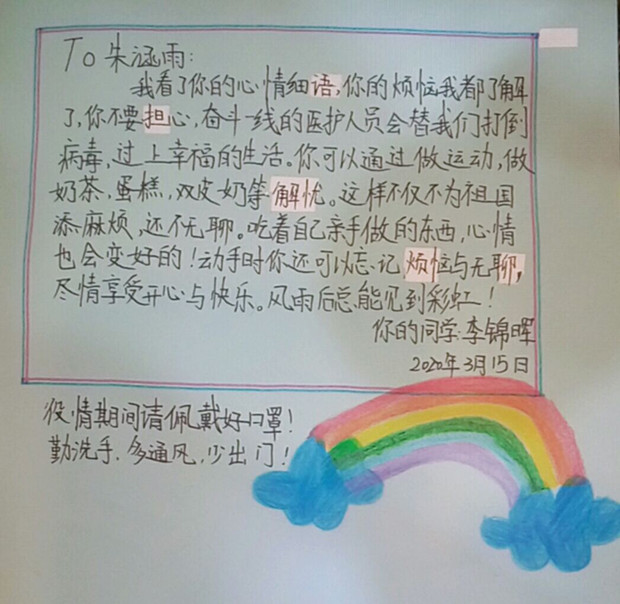 To 朱涵雨:
我看了你的心情细语,你的烦恼我都了解
了,你不要担心,奋斗一线的医护人员会替我们打倒
病毒,过上幸福的生活。你可以通过做运动,做
奶茶,蛋糕,双皮奶等解忧。这样不仅不为祖国
添麻烦,还不无聊。吃着自己亲手做的东西,心情
也会变好的!动手时你还可以忘记,烦恼与无聊,
尽情享受开心与快乐。风雨后总能见到彩虹!
你的同学:李锦晖
2020年3月15日
役情期间请佩戴好口罩!
勤洗手,多通风,少出门!